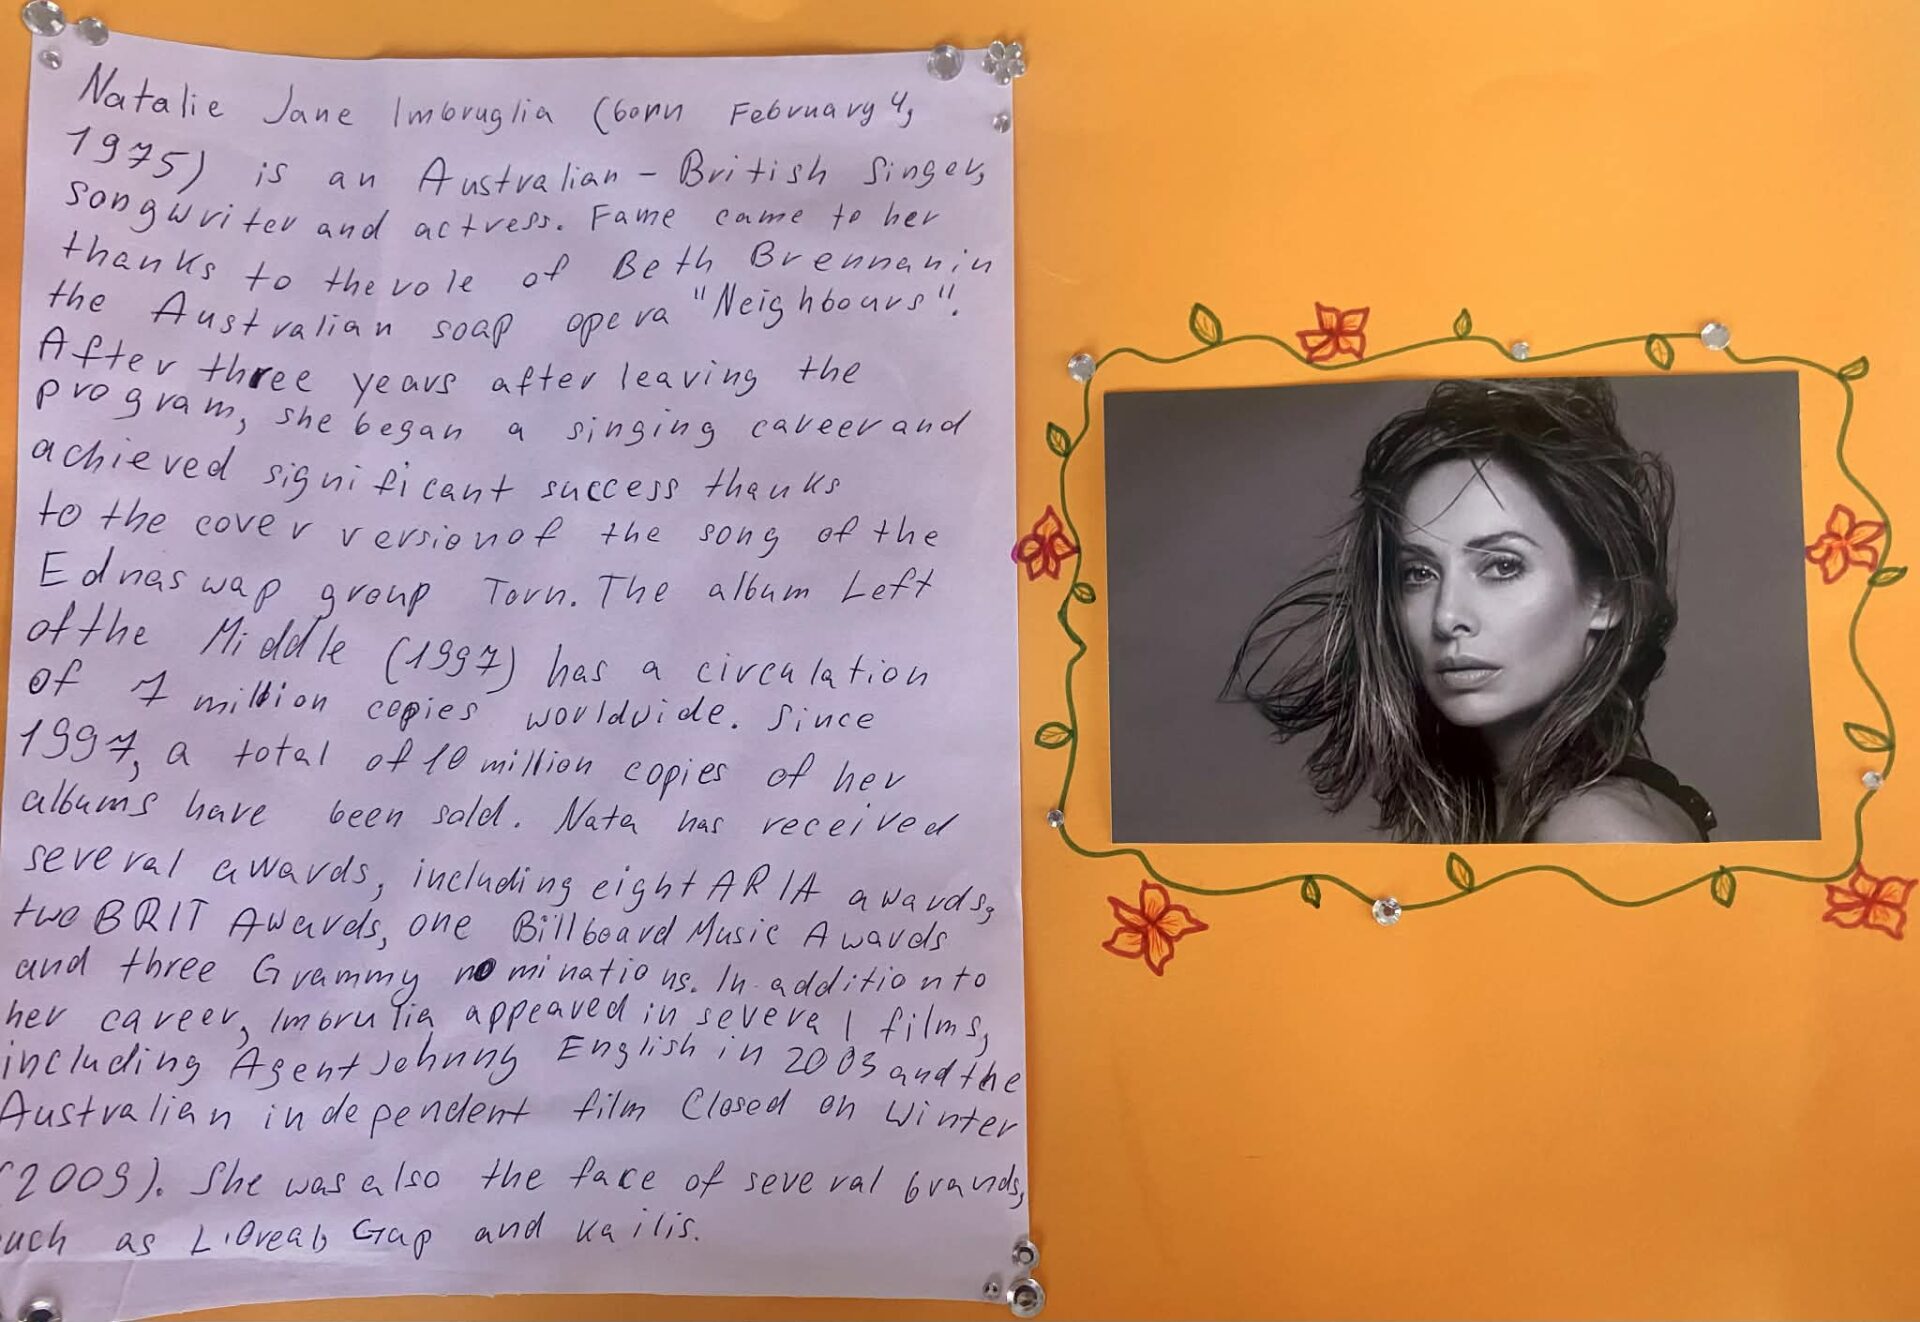 Natalie Jane Imbruglia (born February 4,
1975) is an Australian - British singer,
songwriter and actress. Fame came to her
thanks to the role of Beth Brennan in
the Australian soap opera "Neighbours".
After three years after leaving the
program, she began a singing career and
achieved significant success thanks
to the cover version of the song of the
Ednaswap group Torn. The album Left
of the Middle (1997) has a circulation
of 7 million copies worldwide. Since
1997, a total of 10 million copies of her
albums have been sold. Nata has received
several awards, including eight ARIA awards,
two BRIT Awards, one Billboard Music Awards
and three Grammy nominations. In addition to
her career, Imbrulia appeared in several films,
including Agent Johnny English in 2003 and the
Australian independent film Closed on Winter
(2009). She was also the face of several brands,
uch as L'Oreal, Gap and Kailis.